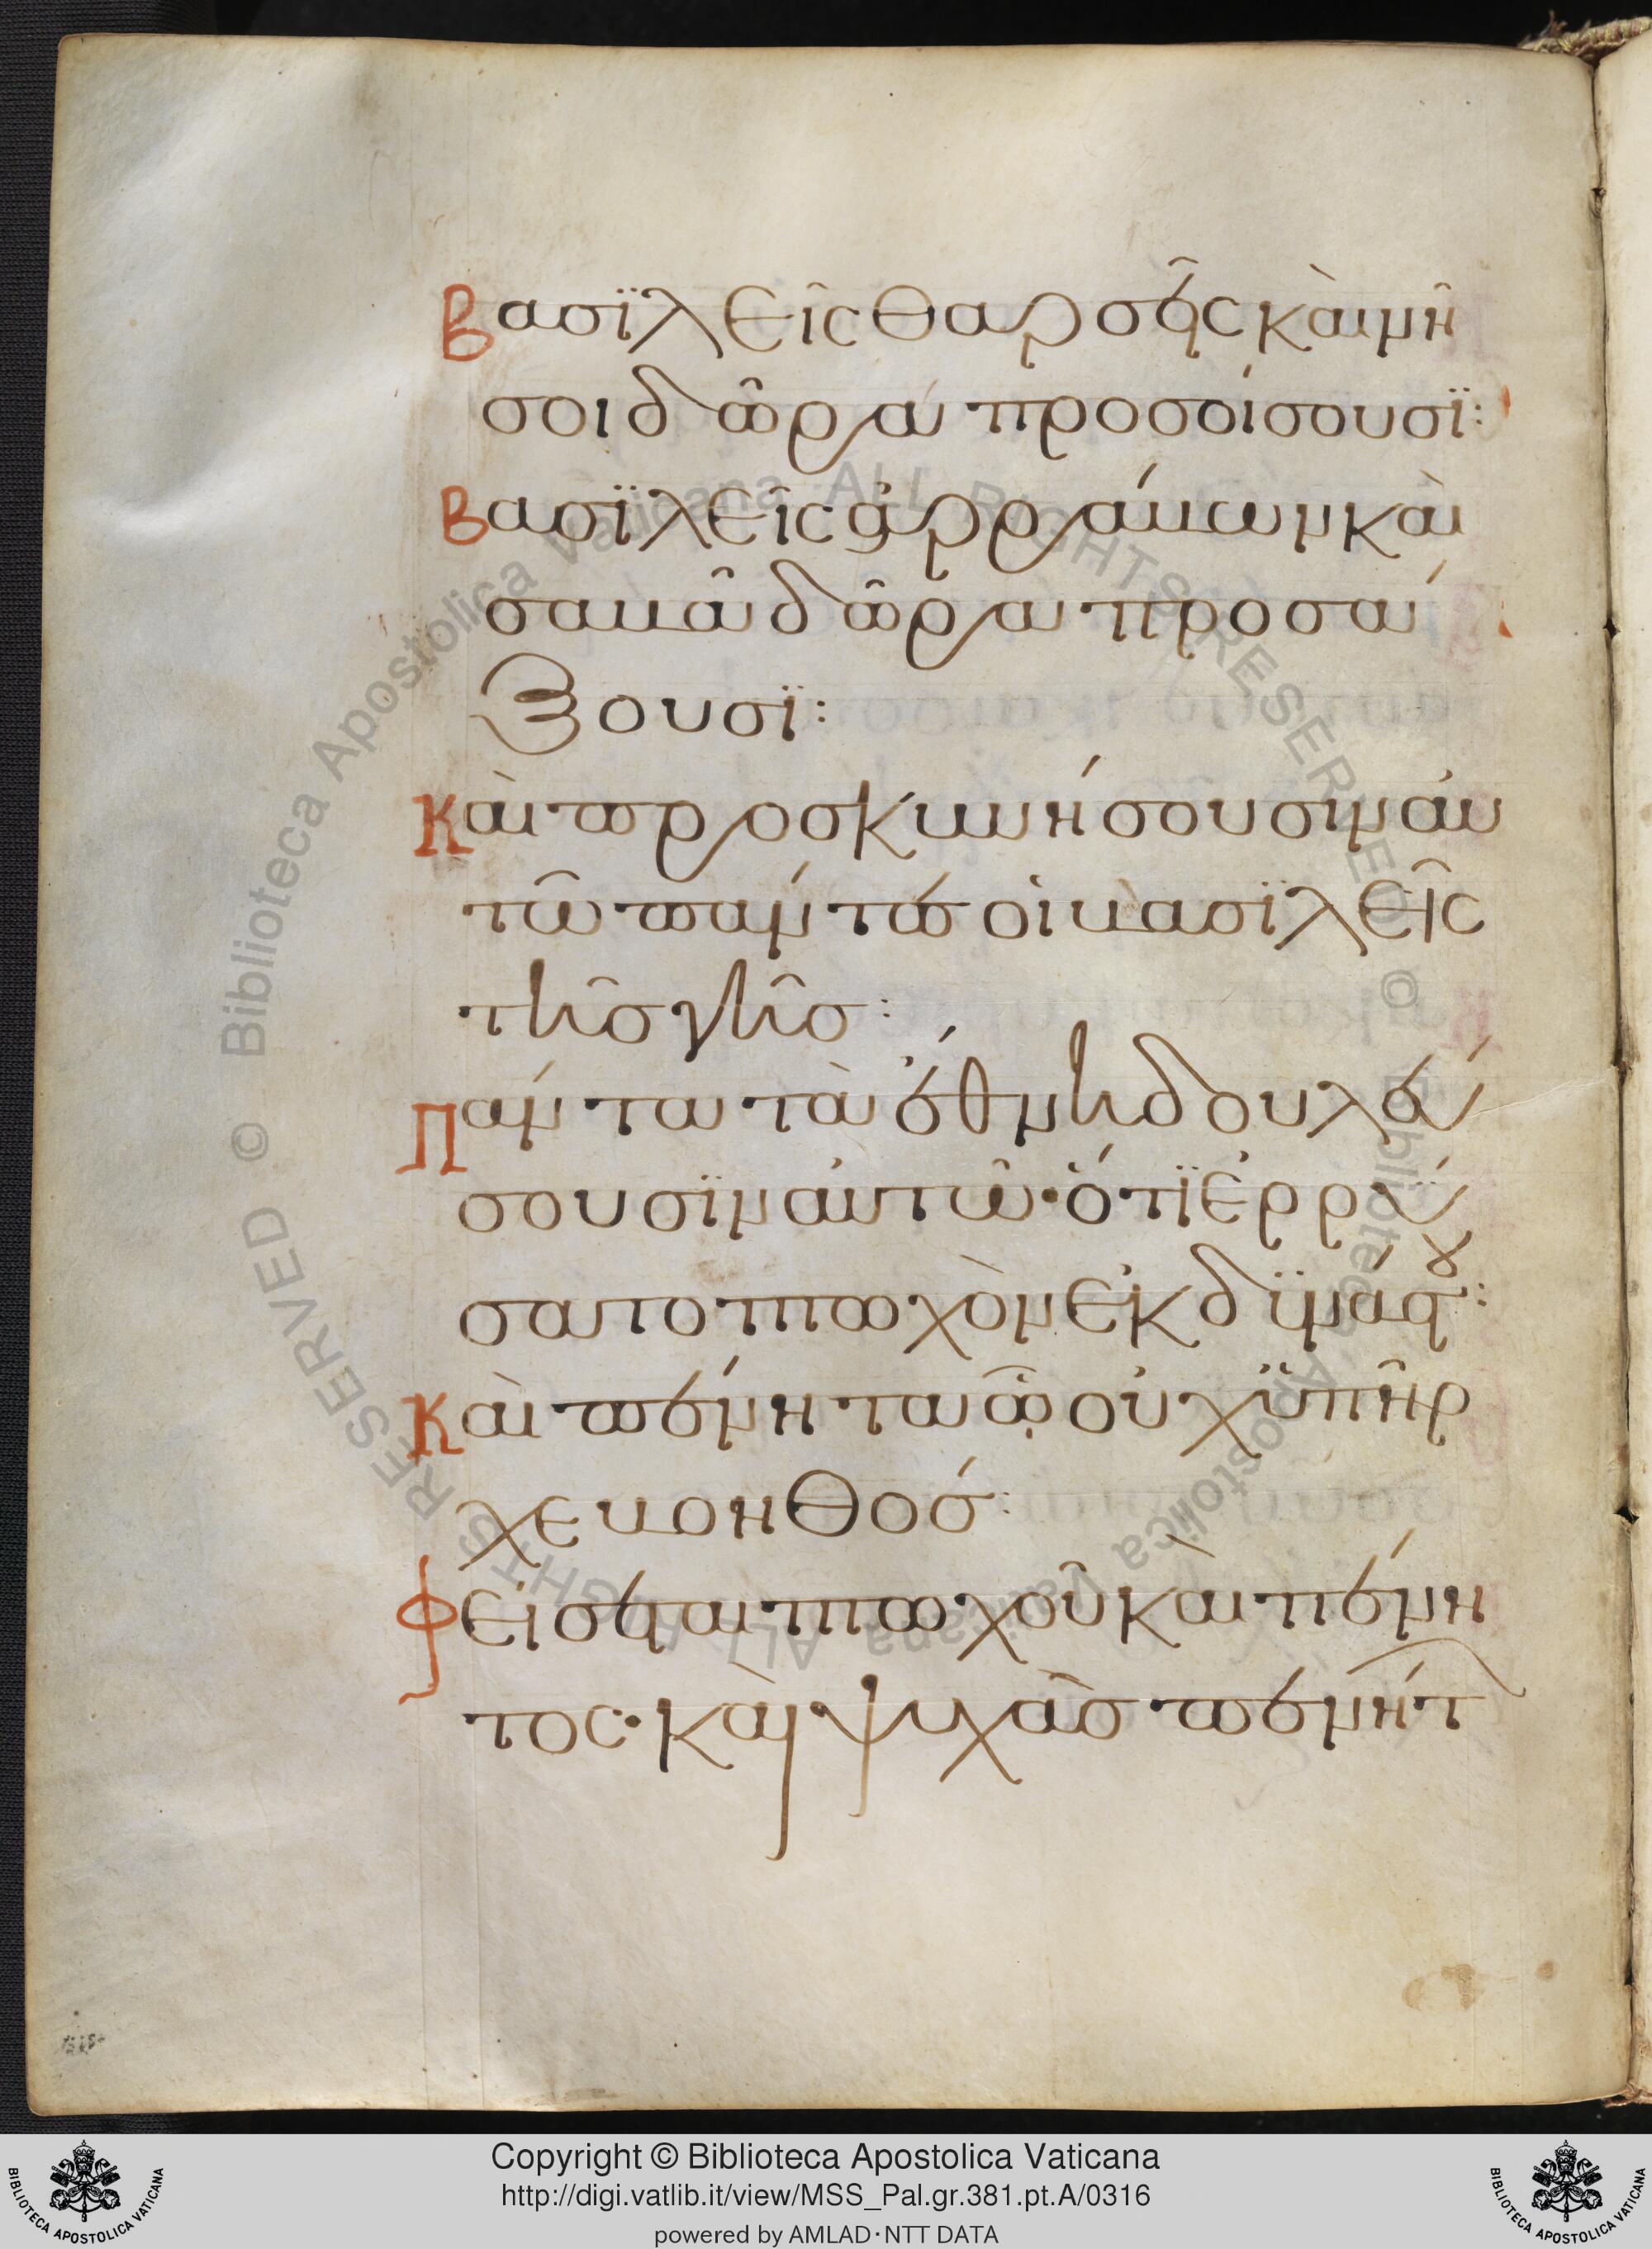 Βασϊλεῖς θαρσεῖς καὶ μῆ
σοι δῶρα προσοίσουσϊ:
Βασϊλεῖς ἀρράβων καὶ
σαβᾶ δῶρα προσά
ξουσϊ:
Καὶ προσκυνήσουσιν αὐ
τῶ πάντες οἱ βασϊλεῖς
τῆς γῆς:
Πάντα τὰ ἔθνη δουλεύ
σουσϊν αὐτῶ· ὅτϊ ἐρρύ
σατο πτωχὸν ἐκ δϋνάστου:
Καὶ πένητα ᾧ οὐχ ϋπῆρ
χε βοηθός:
Φείσεται πτωχοῦ καὶ πένη
τος· καὶ ψυχὰς πενήτ
Copyright © Biblioteca Apostolica Vaticana
http://digi.vatlib.it/view/MSS_Pal.gr.381.pt.A/0316
powered by AMLAD·NTT DATA
BIBLIOTECA APOSTOLICA VATICANA
BIBLIOTECA APOSTOLICA VATICANA
© Biblioteca Apostolica Vaticana ALL RIGHTS RESERVED © Biblioteca Apostolica Vaticana ALL RIGHTS RESERVED